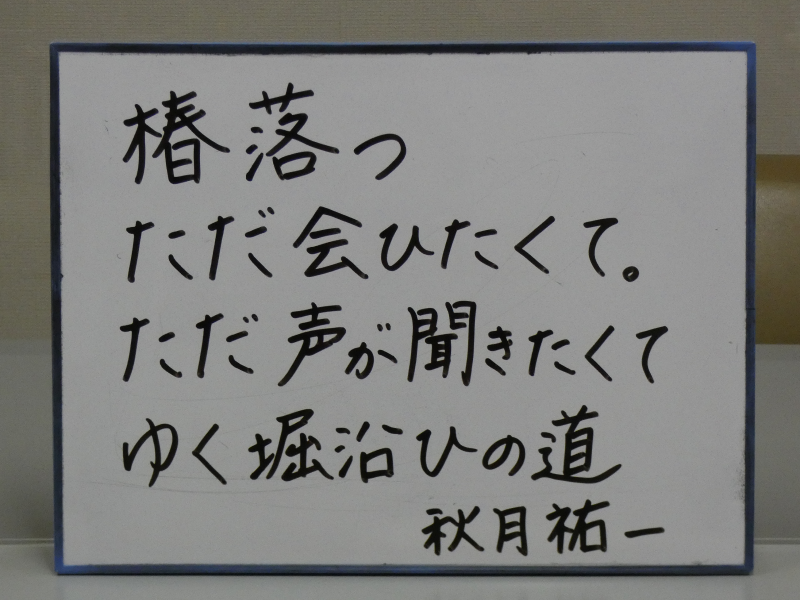 椿落つ
ただ会ひたくて。
ただ声が聞きたくて
ゆく堀沿ひの道
秋月祐一